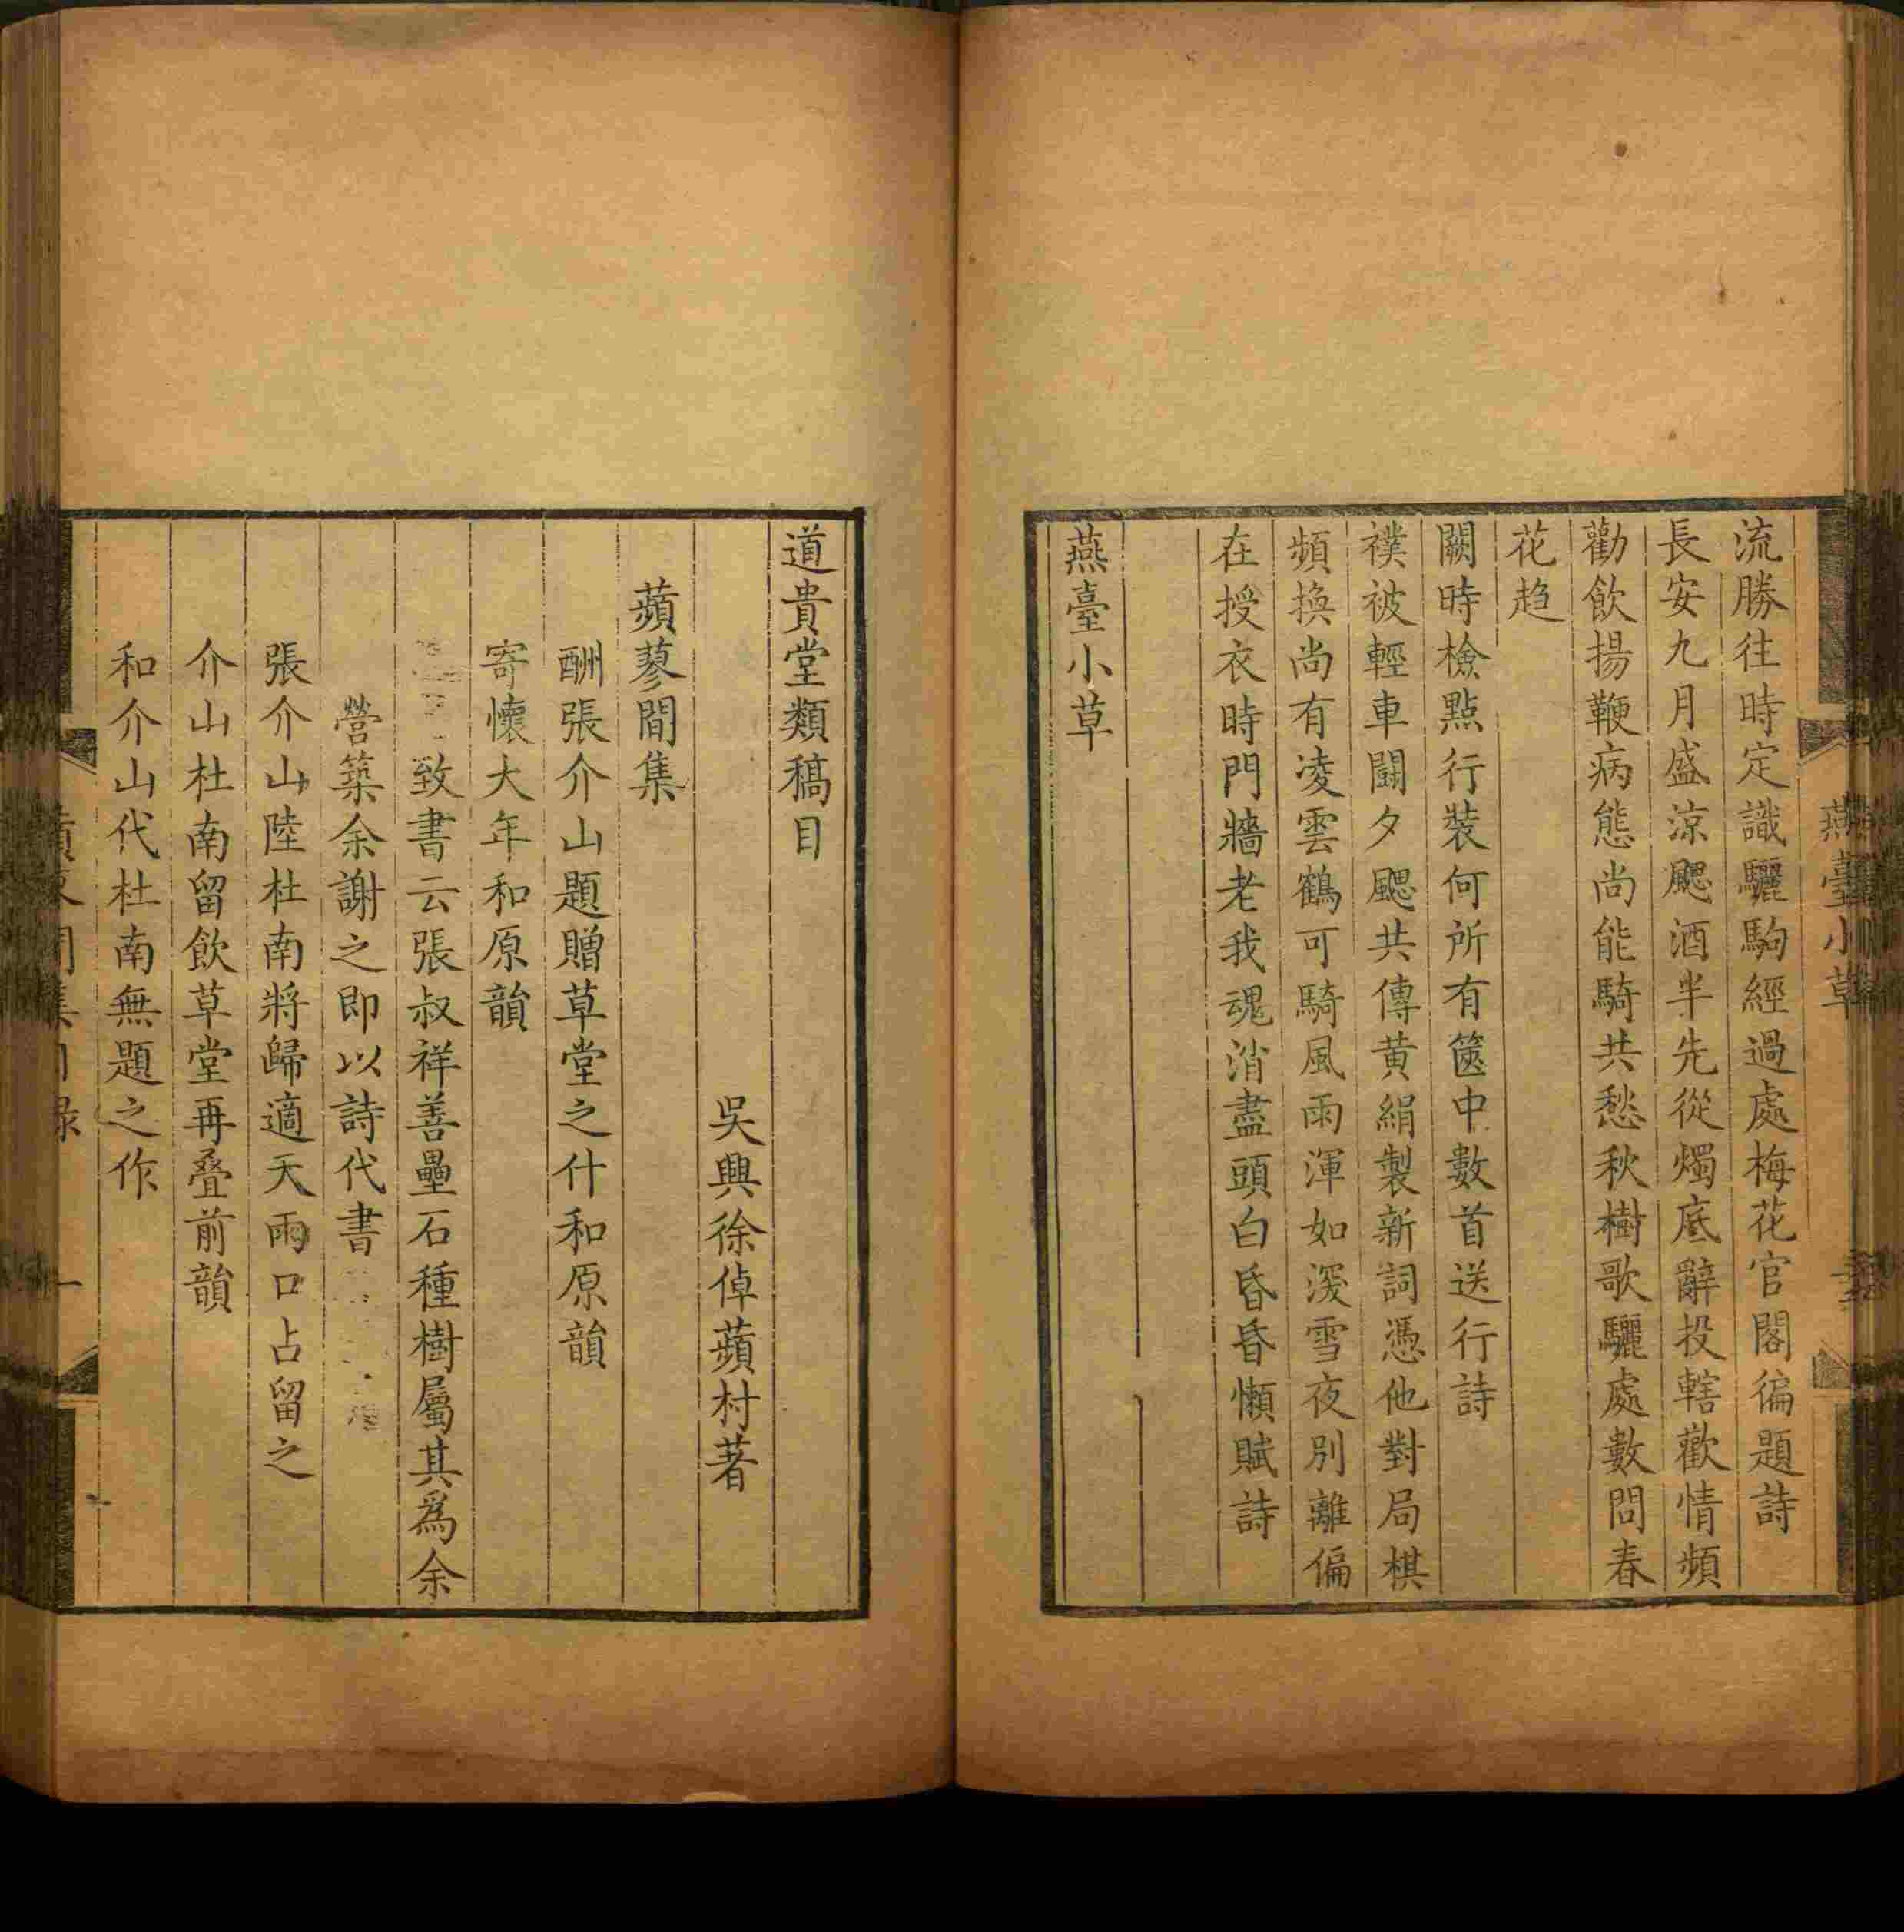 燕臺小草
流勝往時定識驪駒經過處梅花官閣徧題詩
長安九月盛涼颸酒半先從燭底辭投轄歡情頻
勸飲揚鞭病態尚能騎共愁秋樹歌驪處數問春
花趋
闕時檢點行裝何所有篋中數首送行詩
襆被輕車鬭夕颸共傳黄絹製新詞憑他對局棋
頻換尚有凌雲鶴可騎風雨渾如湲雪夜別離偏
在授衣時門牆老我魂消盡頭白昏昏懶賦詩
燕臺小草
道貴堂類稿目
吳興徐倬蘋村著
蘋蓼閒集
酬張介山題贈草堂之什和原韻
寄懷大年和原韻
致書云張叔祥善壘石種樹屬其爲余
營築余謝之即以詩代書
張介山陸杜南將歸適天雨口占留之
介山杜南留飲草堂再叠前韻
和介山代杜南無題之作
一